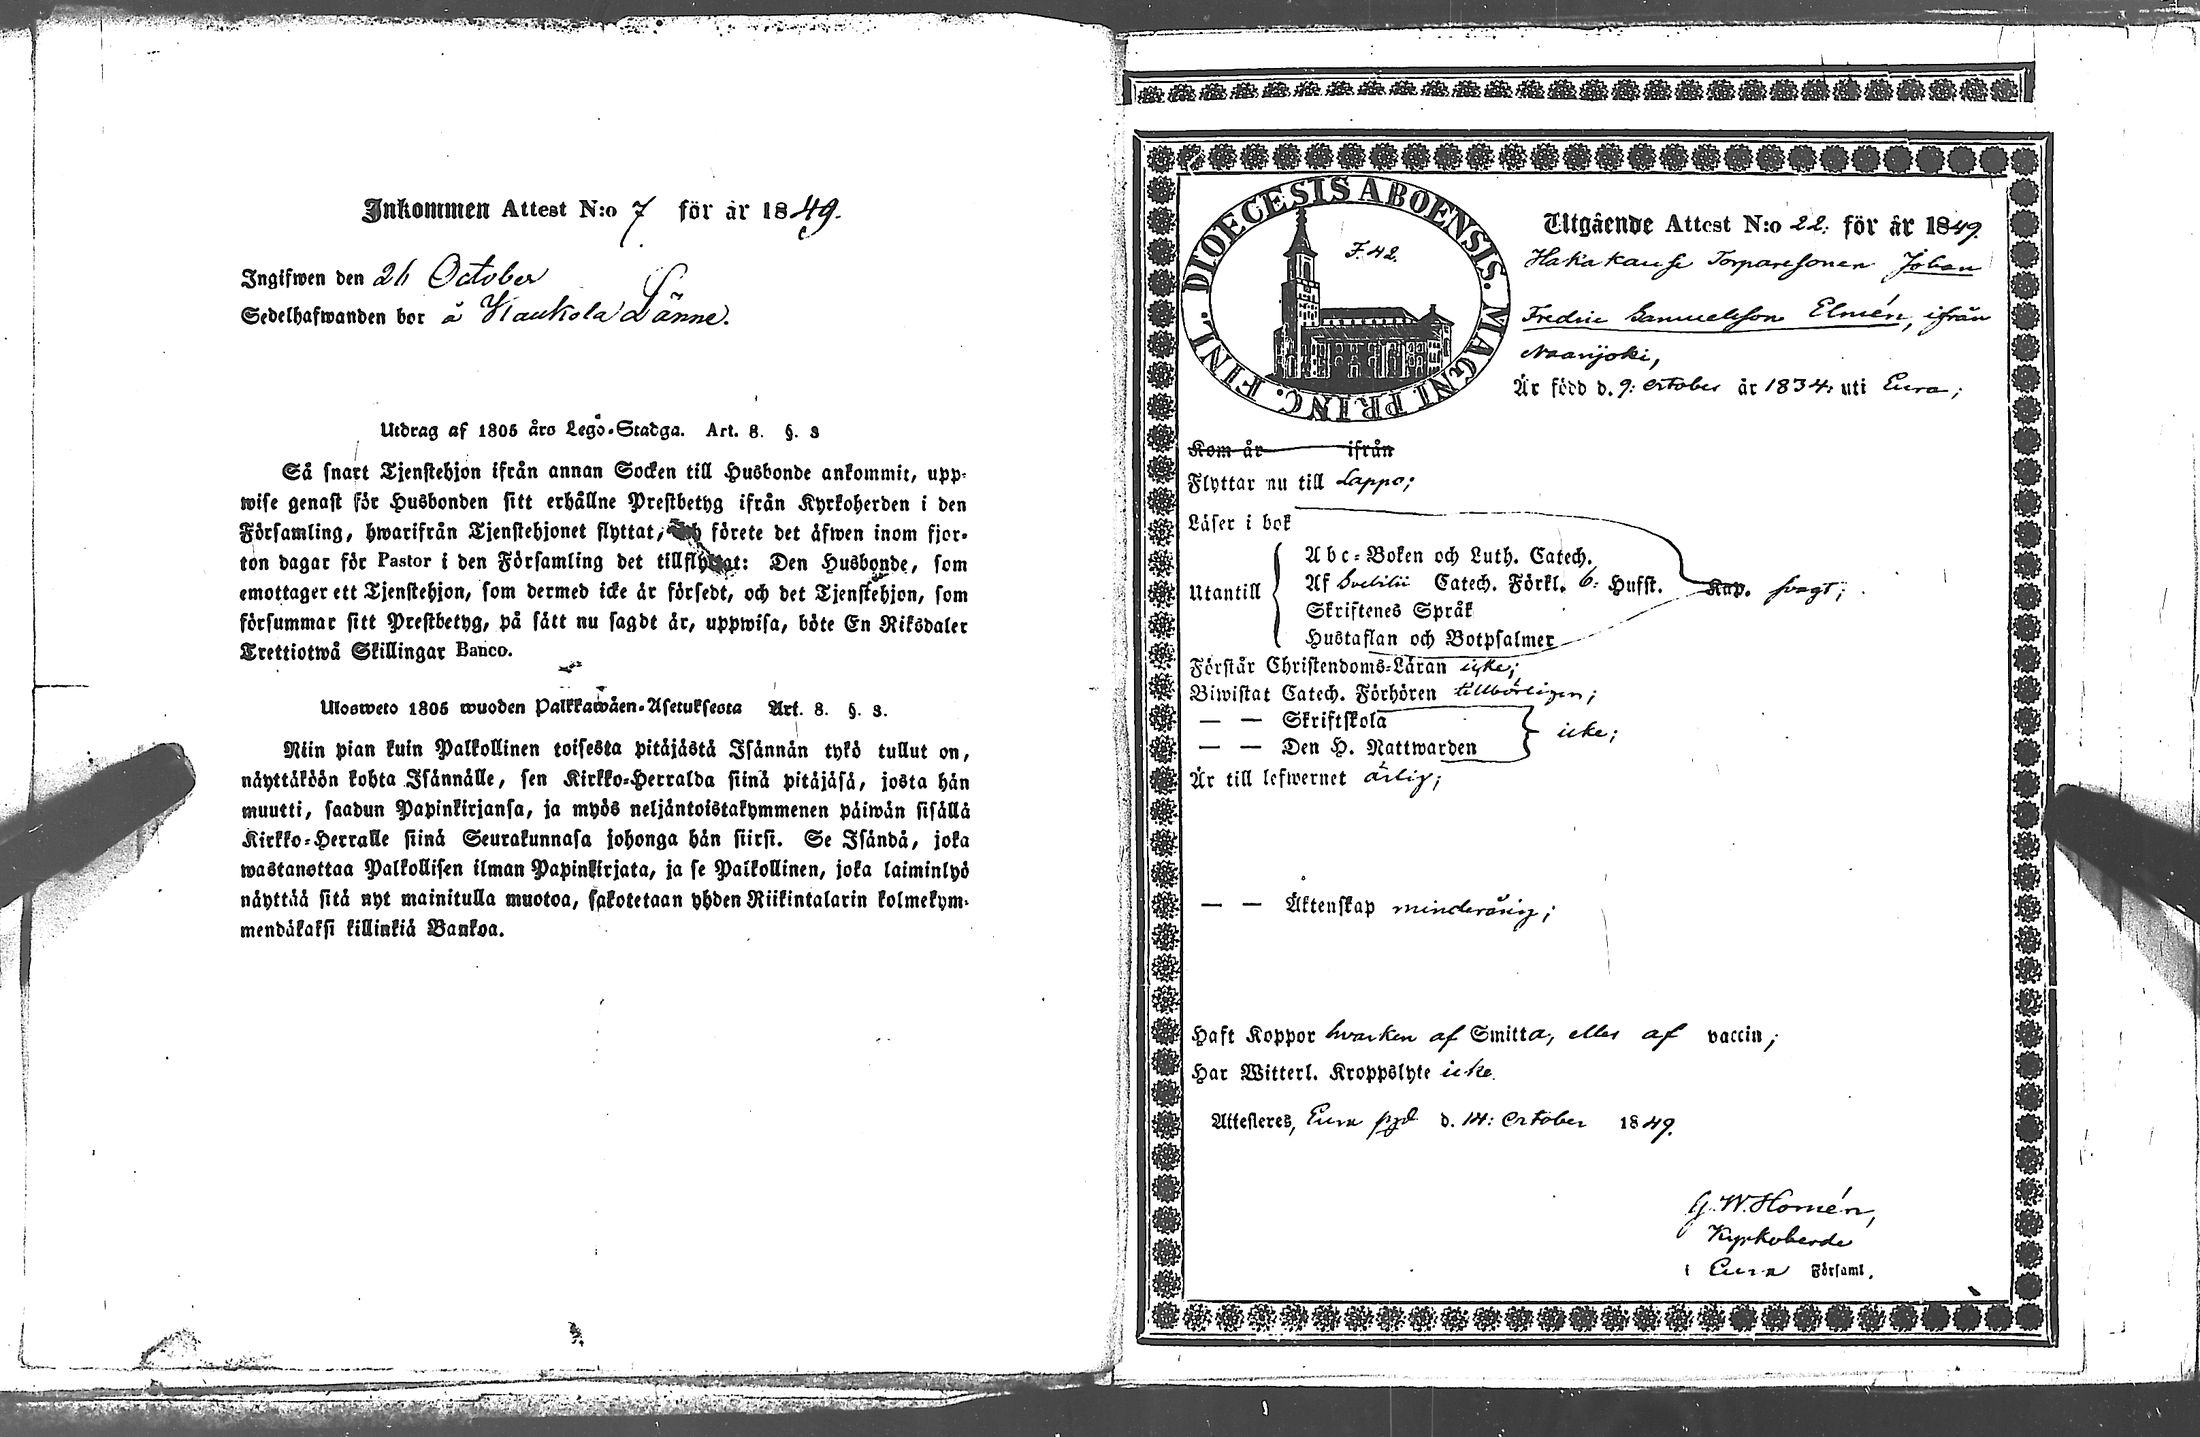 Inkommen Attest N:o 7 för år 1849.
Ingifwen den 26 October
Sedelhafwanden bor å Kaukola Länne.
Utdrag af 1805 års Lego-Stadga. Art. 8. §. 3
Så snart Tjenstehjon ifrån annan Socken till Husbonde ankommit, upp-
wise genast för Husbonden sitt erhållne Prestbetyg ifrån Kyrkoherden i den
Församling, hwarifrån Tjenstehjonet flyttat, och förete det äfwen inom fjor-
ton dagar för Pastor i den Församling det tillflyttat: Den Husbonde, som
emottager ett Tjenstehjon, som dermed icke är försedt, och det Tjenstehjon, som
försummar sitt Prestbetyg, på sätt nu sagdt är, uppwisa, böte En Riksdaler
Trettiotwå Skillingar Banco.
Ulosweto 1805 wuoden Palkkawäen-Asetuksesta Art. 8. §. 3.
Niin pian kuin Palkollinen toisesta pitäjästä Isännän tykö tullut on,
näyttäköön kohta Isännälle, sen Kirkko-Herralda siinä pitäjäsä, josta hän
muutti, saadun Papinkirjansa, ja myös neljäntoistakymmenen päiwän sisällä
Kirkko-Herralle siinä Seurakunnasa johonga hän siirsi. Se Isändä, joka
wastanottaa Palkollisen ilman Papinkirjata, ja se Palkollinen, joka laiminlyö
näyttää sitä nyt mainitulla muotoa, sakotetaan yhden Riikintalarin kolmekym-
mendäkaksi killinkiä Bankoa.
DIOECESIS ABOENSIS. MAGNI PRINC. FINL.
F. 42.
Utgående Attest N:o 22: för år 1849.
Torparesonen Johan
Fredric Samuelsson Elmén, ifrån
Naarijoki,
Är född d. 9: October år 1834: uti Eura;
Kom år ifrån
Flyttar nu till Lappo;
Läser i bok
Utantill
Abc-Boken och Luth. Catech.
Af Svebilii Catech. Förkl. 6: Hufst. Kap. svagt;
Skriftenes Språk
Hustaflan och Botpsalmer
Förstår Christendoms-Läran icke;
Biwistat Catech. Förhören tillbörligen;
— — Skriftskola
— — Den H. Nattwarden icke;
Är till lefwernet ärlig;
— — Äktenskap minderårig;
Haft Koppor hvarken af Smitta, eller af vaccin;
Har Witterl. Kroppslyte icke.
Attesteres, Eura pgd d. 14: October 1849.
G. W. Homén,
Kyrkoherde
i Eura Församl.